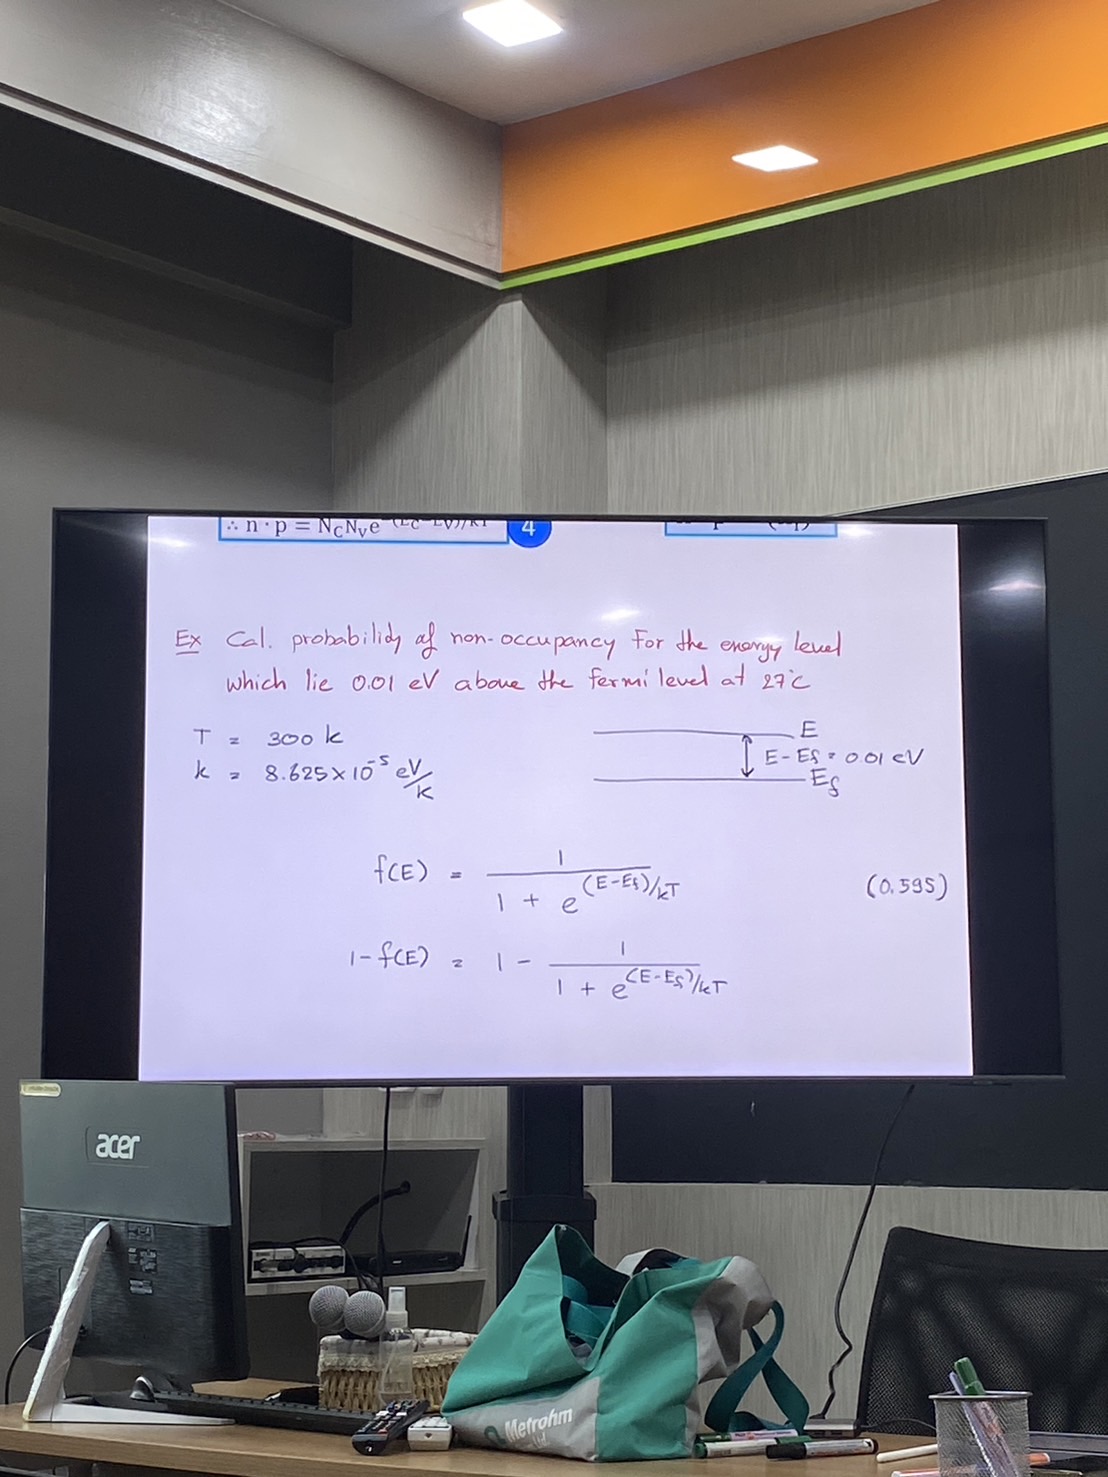 ∴ n · p = N_C N_V e^-(E_C-E_V)/kT
4
Ex Cal. probability of non-occupancy For the energy level
which lie 0.01 eV above the fermi level at 27°C
T = 300 k
k = 8.625 × 10^-5 eV/K
E
E - Ef = 0.01 eV
Ef
f(E) = 1 / 1 + e^(E-Ef)/kT
(0.595)
1 - f(E) = 1 - 1 / 1 + e^(E-Ef)/kT
acer
Metrohm